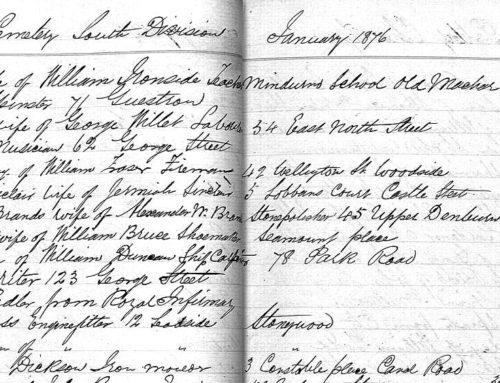 Cemetery South Division January 1876
of William Ironside Teacher Mindurno School Old Machar
Spinster 74 Guestrow
wife of George Millet Labourer 54 East North Street
Musician 62 George Street
of William Fraser Fireman 42 Wellington St Woodside
Sinclair wife of Jermiah Sinclair 5 Lobbans Court Castle Street
Brands wife of Alexander W. Brands Stonepolisher 45 Upper Denburn
wife of William Bruce Shoemaker Seamount place
of William Duncan Ship Carpenter 78 Park Road
123 George Street
from Royal Infirmary
Enginefitter 12 Seaside Stonywood
of "
Dickson Iron moulder 3 Constable place Canal Road